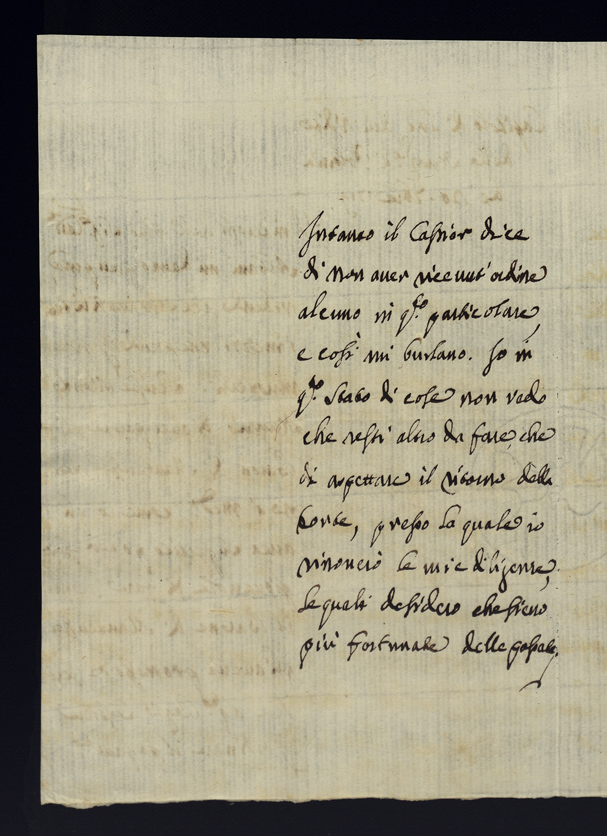 Intanto il Cassier dice
di non aver ricevut' ordine
alcuno in q.to particolare,
e così mi burlano. Io in
q.to stato di cose non vedo
che resti altro da fare, che
di aspettare il ritorno della
Corte, presso la quale io
rinoverò le mie diligenze,
le quali desidero che sieno
più fortunate delle passate.